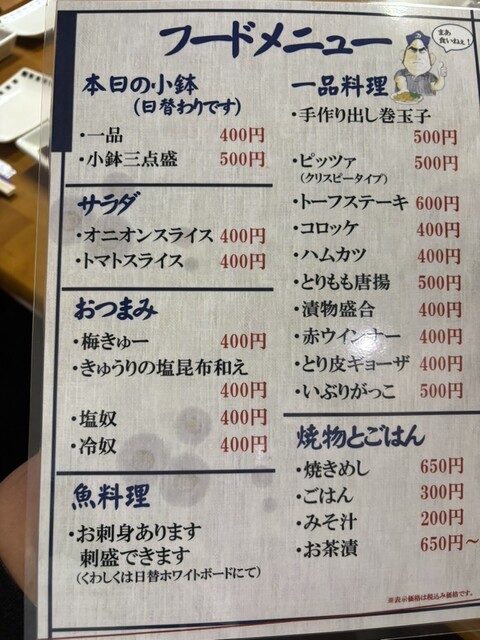 フードメニュー
まあ
食いねぇ！
本日の小鉢
(日替わりです)
・一品 400円
・小鉢三点盛 500円
サラダ
・オニオンスライス 400円
・トマトスライス 400円
おつまみ
・梅きゅー 400円
・きゅうりの塩昆布和え
400円
・塩奴 400円
・冷奴 400円
魚料理
・お刺身あります
刺盛できます
(くわしくは日替ホワイトボードにて)
一品料理
・手作り出し巻玉子
500円
・ピッツァ 500円
(クリスピータイプ)
・トーフステーキ 600円
・コロッケ 400円
・ハムカツ 400円
・とりもも唐揚 500円
・漬物盛合 400円
・赤ウインナー 400円
・とり皮ギョーザ 400円
・いぶりがっこ 500円
焼物とごはん
・焼きめし 650円
・ごはん 300円
・みそ汁 200円
・お茶漬 650円～
※表示価格は税込み価格です。